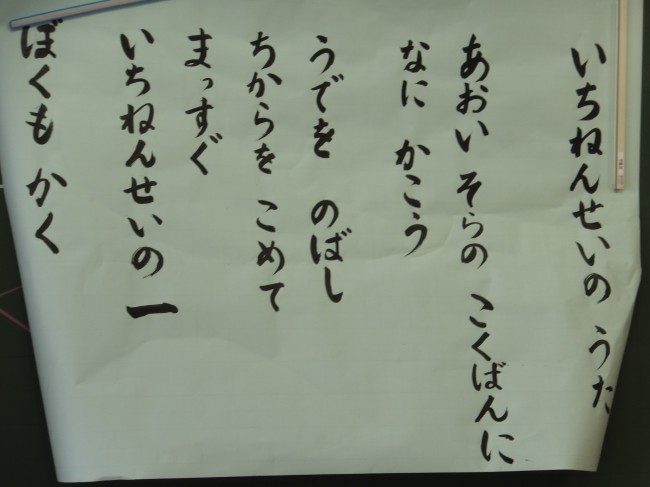 いちねんせいの うた
あおい そらの こくばんに
なに かこう
うでを のばし
ちからを こめて
まっすぐ
いちねんせいの 一
ぼくも かく